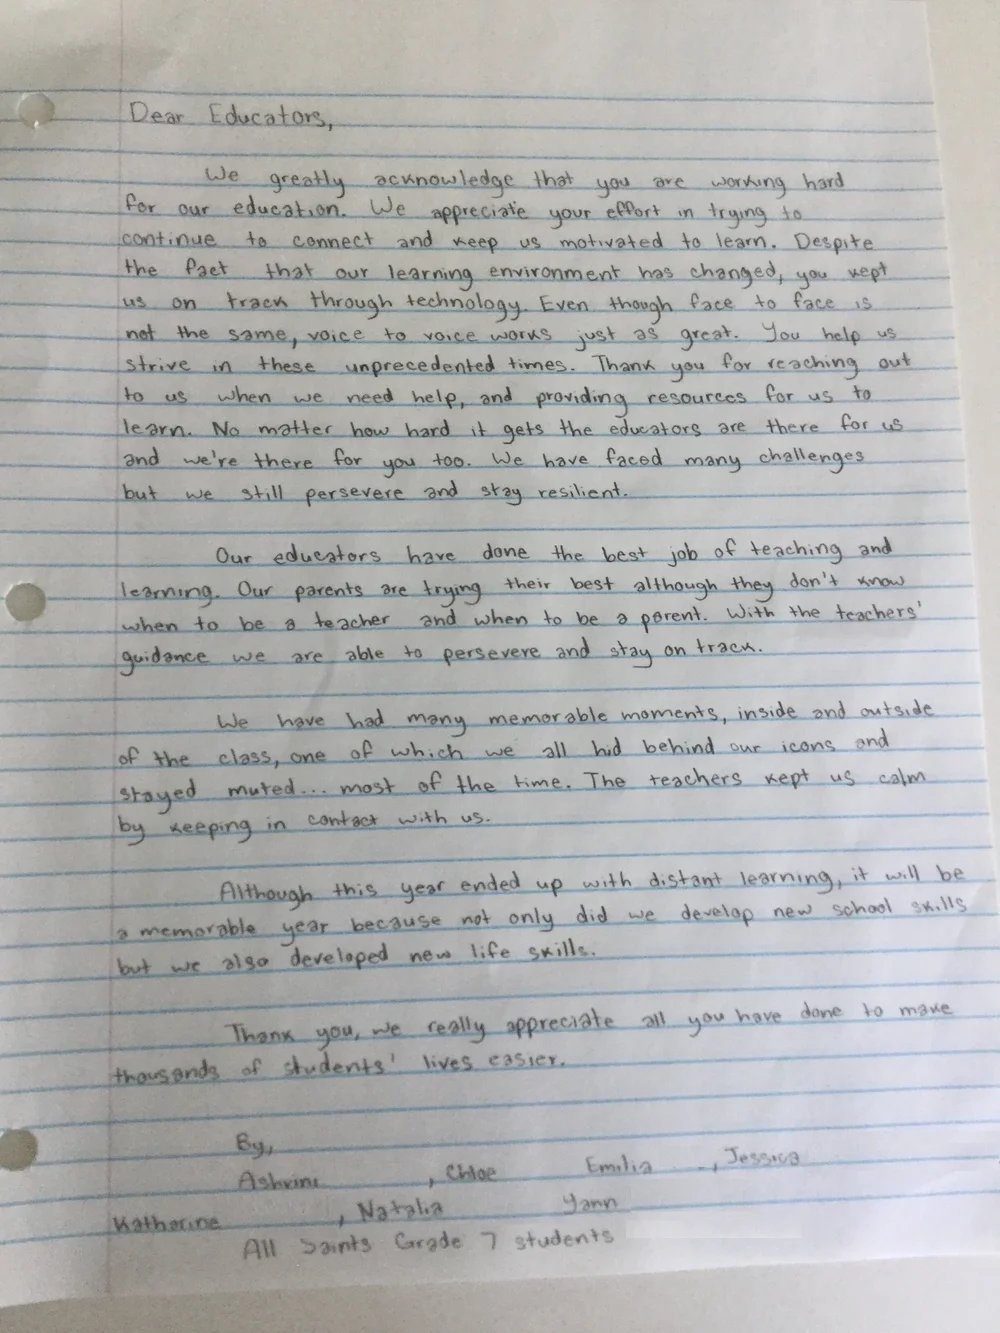 Dear Educators,
We greatly acknowledge that you are working hard
for our education. We appreciate your effort in trying to
continue to connect and keep us motivated to learn. Despite
the fact that our learning environment has changed, you kept
us on track through technology. Even though face to face is
not the same, voice to voice works just as great. You help us
strive in these unprecedented times. Thank you for reaching out
to us when we need help, and providing resources for us to
learn. No matter how hard it gets the educators are there for us
and we're there for you too. We have faced many challenges
but we still persevere and stay resilient.
Our educators have done the best job of teaching and
learning. Our parents are trying their best although they don't know
when to be a teacher and when to be a parent. With the teachers'
guidance we are able to persevere and stay on track.
We have had many memorable moments, inside and outside
of the class, one of which we all hid behind our icons and
stayed muted... most of the time. The teachers kept us calm
by keeping in contact with us.
Although this year ended up with distant learning, it will be
a memorable year because not only did we develop new school skills
but we also developed new life skills.
Thank you, we really appreciate all you have done to make
thousands of students' lives easier.
By,
Ashvini , Chloe Emilia , Jessica
Katharine , Natalia Yann
All Saints Grade 7 students